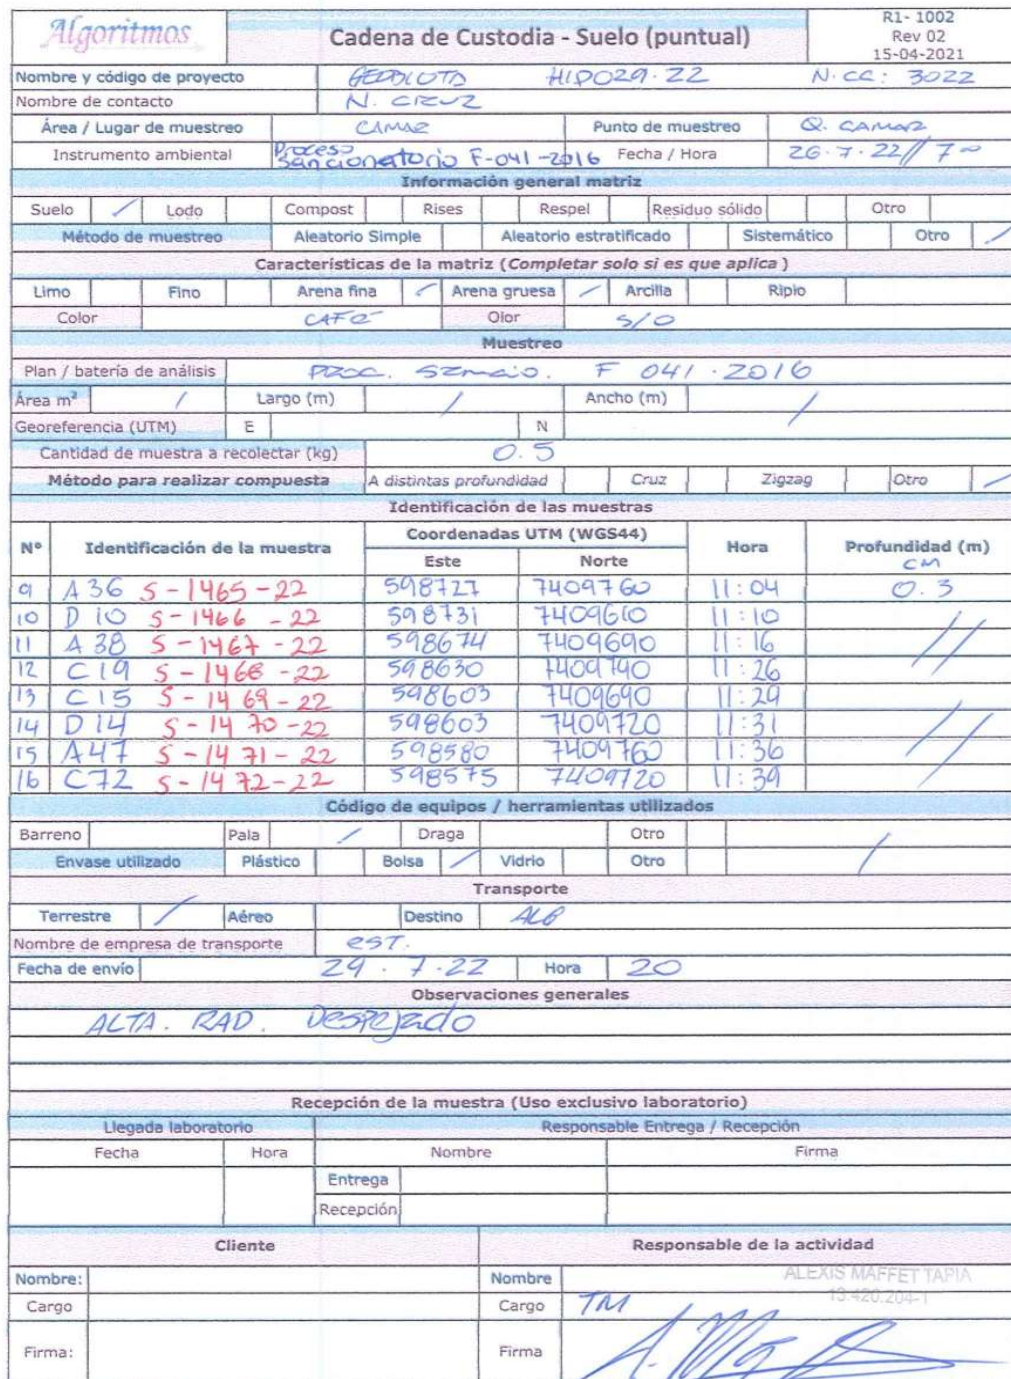 Algoritmos
Cadena de Custodia - Suelo (puntual)
R1- 1002
Rev 02
15-04-2021
Nombre y código de proyecto GEOBIOTA HIDO29.22 N.CC: 3022
Nombre de contacto N. CRUZ
Área / Lugar de muestreo CAMAR Punto de muestreo Q. CAMAR
Instrumento ambiental Proceso Sancionatorio F-041-2016 Fecha / Hora 26.7.22// 7
Información general matriz
Suelo / Lodo Compost Rises Respel Residuo sólido Otro
Método de muestreo Aleatorio Simple Aleatorio estratificado Sistemático Otro /
Características de la matriz (Completar solo si es que aplica )
Limo Fino Arena fina / Arena gruesa / Arcilla Ripio
Color CAFE Olor S/O
Muestreo
Plan / batería de análisis PROC. F 041.2016
Área m² / Largo (m) / Ancho (m) /
Georeferencia (UTM) E N
Cantidad de muestra a recolectar (kg) 0.5
Método para realizar compuesta A distintas profundidad Cruz Zigzag Otro /
Identificación de las muestras
Nº Identificación de la muestra Coordenadas UTM (WGS44) Hora Profundidad (m)
Este Norte CM
9 A36 S-1465-22 598727 7409760 11:04 0.3
10 D10 S-1466-22 598731 7409610 11:10 //
11 A38 S-1467-22 598674 7409690 11:16
12 C19 S-1468-22 598630 7409790 11:26
13 C15 S-1469-22 598603 7409690 11:29
14 D14 S-1470-22 598603 7409720 11:31 //
15 A47 S-1471-22 598580 7409760 11:36
16 C72 S-1472-22 598575 7409720 11:39
Código de equipos / herramientas utilizados
Barreno Pala / Draga Otro /
Envase utilizado Plástico Bolsa / Vidrio Otro
Transporte
Terrestre / Aéreo Destino ALG
Nombre de empresa de transporte EST.
Fecha de envío 29.7.22 Hora 20
Observaciones generales
ALTA. RAD. Despejado
Recepción de la muestra (Uso exclusivo laboratorio)
Llegada laboratorio Responsable Entrega / Recepción
Fecha Hora Nombre Firma
Entrega
Recepción
Cliente Responsable de la actividad
Nombre: Nombre ALEXIS MAFFET TAPIA
13.420.204-1
Cargo Cargo TM
Firma: Firma